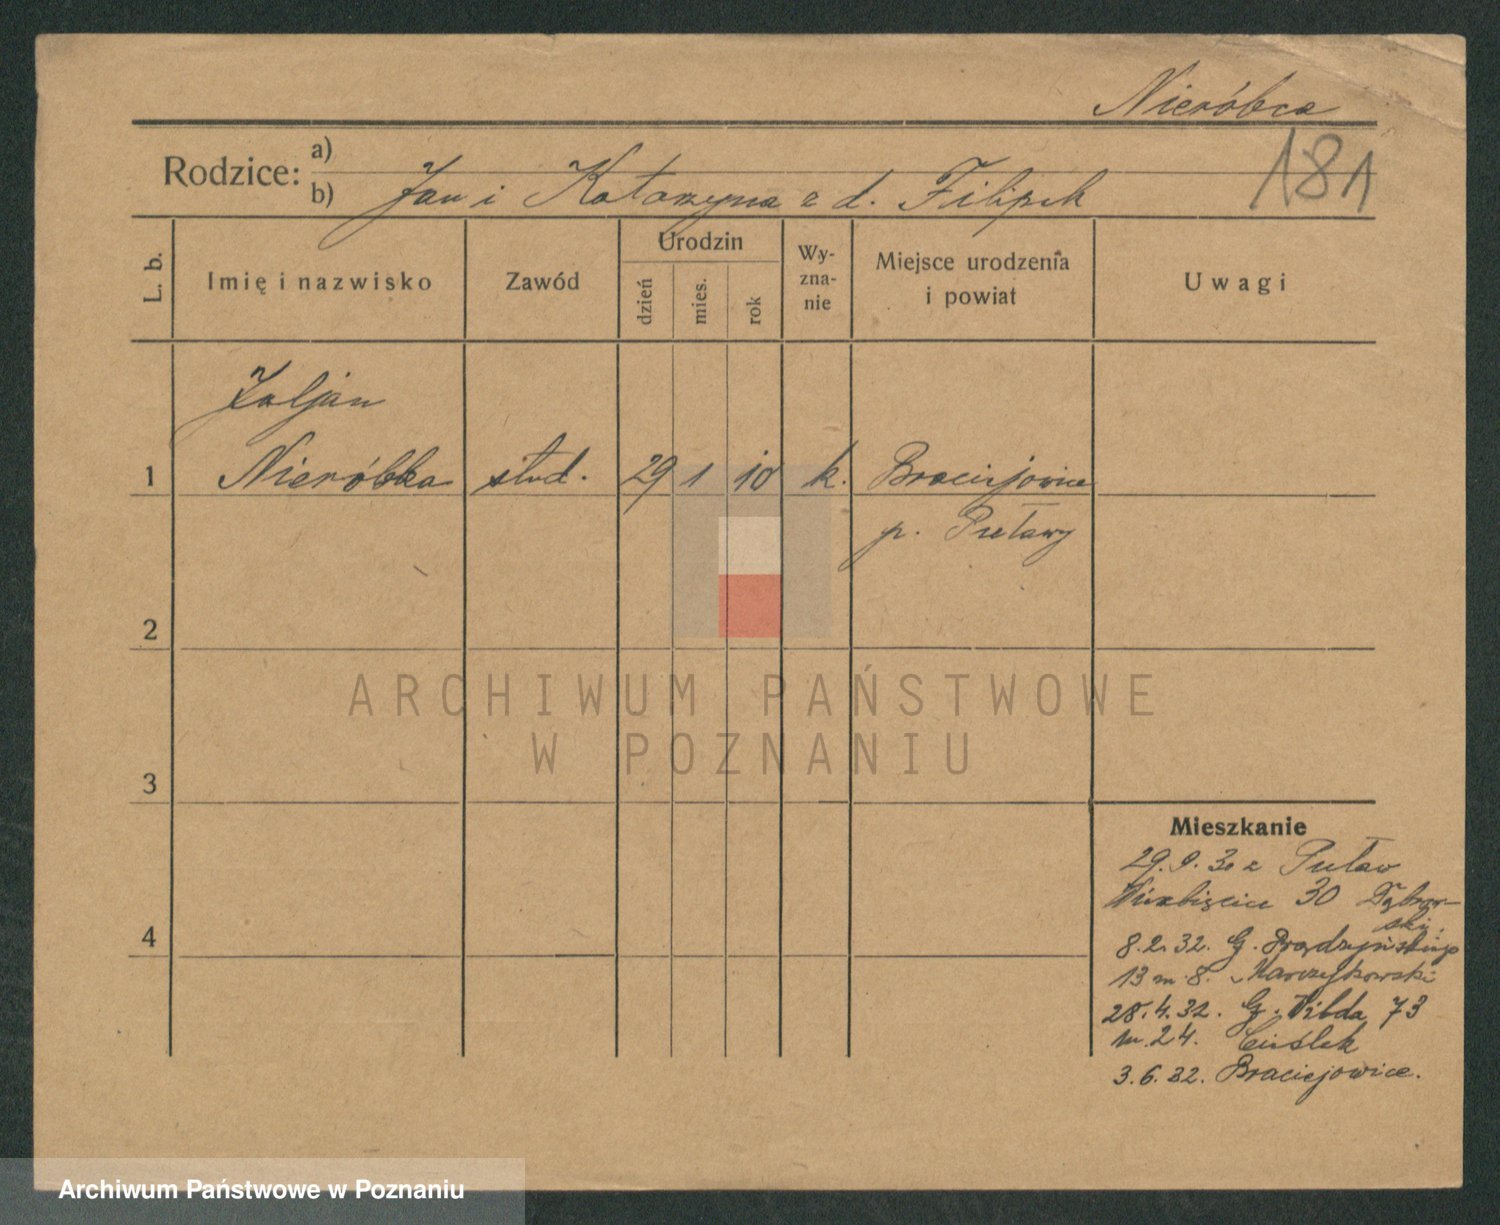 Nieróbca
181
Rodzice: a)
b) Jan i Katarzyna z d. Filipek
L. b.
Imię i nazwisko
Zawód
Urodzin
dzień
mies.
rok
Wy-
zna-
nie
Miejsce urodzenia
i powiat
Uwagi
1 Nieróbka stud. 29 1 10 k. Braciejowice
p. Puławy
2
3
4
Mieszkanie
29.9.30 z Puław
Wierzbięcice 30 Dąbrow-
ski.
8.2.32. G. Prądzyńskiego
13 m. 8. Marczykowski
28.4.32. G. Wilda 73
m. 24. Cieślek
3.6.32. Braciejowice.
ARCHIWUM PAŃSTWOWE
W POZNANIU
Archiwum Państwowe w Poznaniu